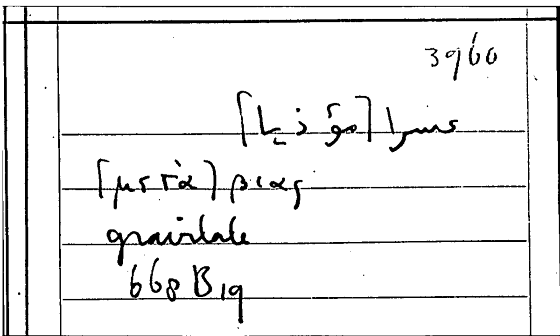 3960
عسرا [مؤذيا]
[μετὰ] βίας
gravitate
668 B19